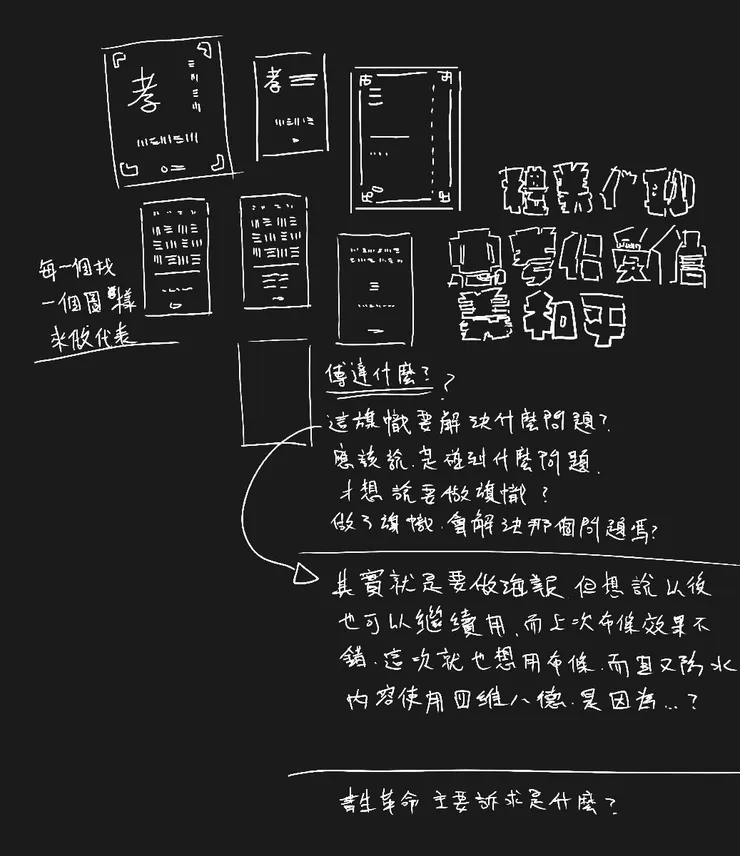 孝
孝
禮義
孝信
和平
每一個找
一個圖樣
來做代表
傳達什麼??
這旗幟要解決什麼問題?
應該說.是碰到什麼問題.
才想說要做旗幟?
做了旗幟.會解決那個問題嗎?
其實就是要做海報 但想說以後
也可以繼續用.而上次布條效果不
錯.這次就也想用布條.而且又防水
內容使用四維八德.是因為...?
書生革命 主要訴求是什麼?